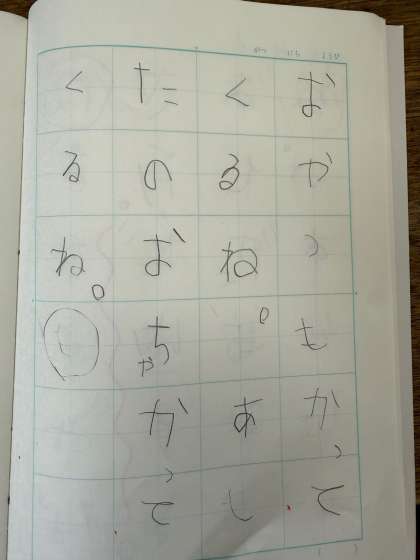 がつ にち ようび
おやつもかって
くるね。あし
たのおちゃかって
くるね。